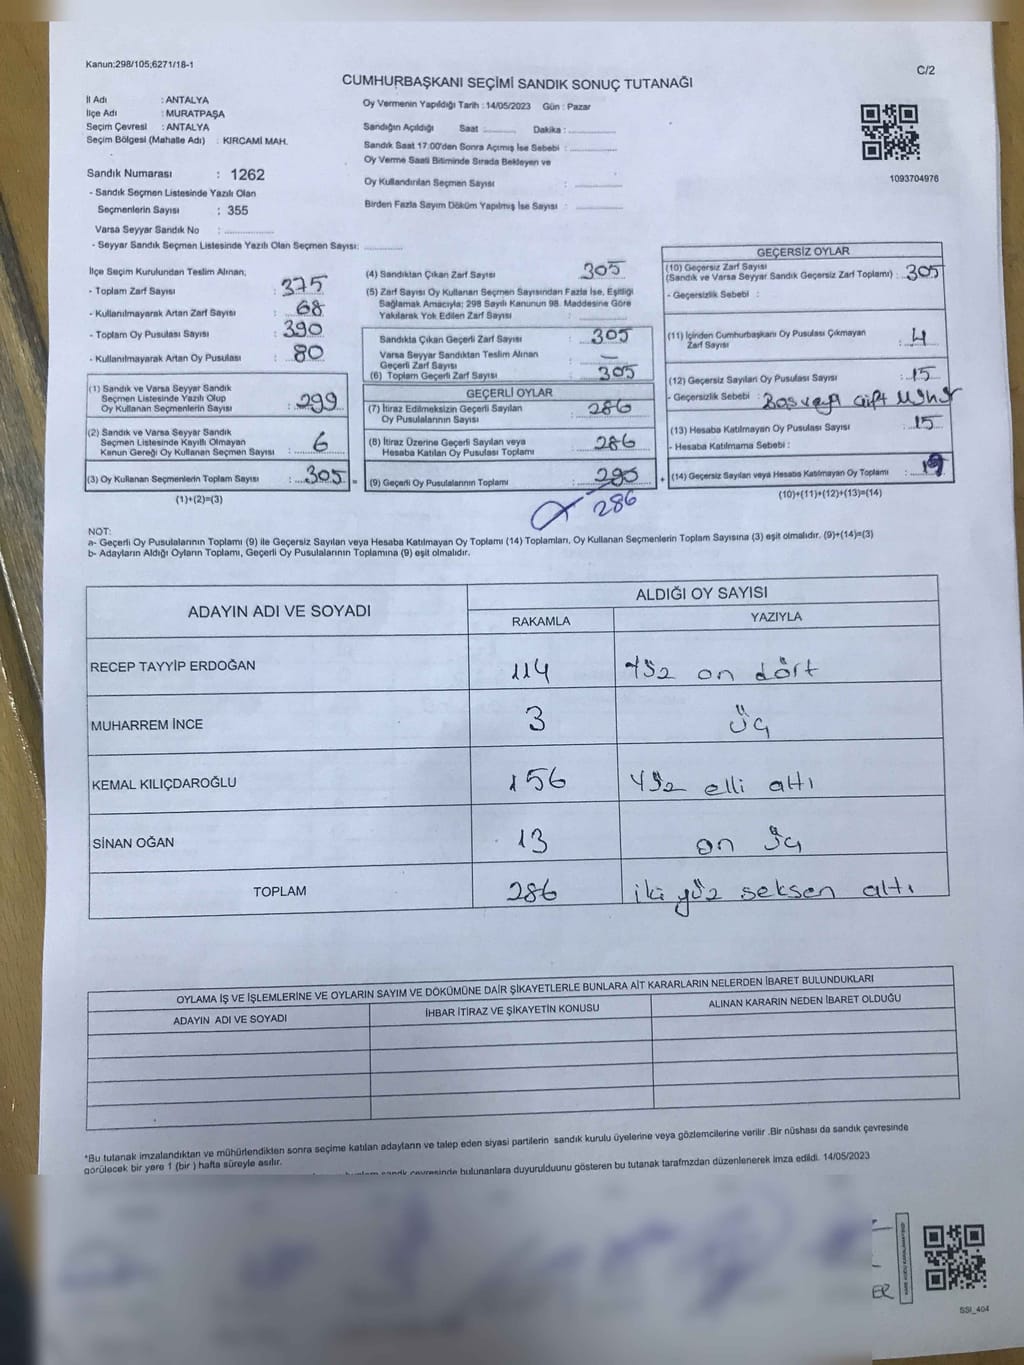 Kanun:298/105;6271/18-1
C/2
CUMHURBAŞKANI SEÇİMİ SANDIK SONUÇ TUTANAĞI
İl Adı : ANTALYA
İlçe Adı : MURATPAŞA
Seçim Çevresi : ANTALYA
Seçim Bölgesi (Mahalle Adı) : KIRCAMİ MAH.
Sandık Numarası : 1262
- Sandık Seçmen Listesinde Yazılı Olan
Seçmenlerin Sayısı : 355
Varsa Seyyar Sandık No :
- Seyyar Sandık Seçmen Listesinde Yazılı Olan Seçmen Sayısı:
Oy Vermenin Yapıldığı Tarih : 14/05/2023 Gün : Pazar
Sandığın Açıldığı Saat Dakika :
Sandık Saat 17:00'den Sonra Açımış İse Sebebi :
Oy Verme Saati Bitiminde Sırada Bekleyen ve
Oy Kullandırılan Seçmen Sayısı :
Birden Fazla Sayım Döküm Yapılmış İse Sayısı :
1093704976
İlçe Seçim Kurulundan Teslim Alınan;
- Toplam Zarf Sayısı : 375
- Kullanılmayarak Artan Zarf Sayısı : 68
- Toplam Oy Pusulası Sayısı : 390
- Kullanılmayarak Artan Oy Pusulası : 80
(1) Sandık ve Varsa Seyyar Sandık
Seçmen Listesinde Yazılı Olup
Oy Kullanan Seçmenlerin Sayısı : 299
(2) Sandık ve Varsa Seyyar Sandık
Seçmen Listesinde Kayıtlı Olmayan
Kanun Gereği Oy Kullanan Seçmen Sayısı : 6
(3) Oy Kullanan Seçmenlerin Toplam Sayısı : 305 =
(1)+(2)=(3)
(4) Sandıktan Çıkan Zarf Sayısı : 305
(5) Zarf Sayısı Oy Kullanan Seçmen Sayısından Fazla İse, Eşitliği
Sağlamak Amacıyla; 298 Sayılı Kanunun 98. Maddesine Göre
Yakılarak Yok Edilen Zarf Sayısı :
Sandıkta Çıkan Geçerli Zarf Sayısı : 305
Varsa Seyyar Sandıktan Teslim Alınan
Geçerli Zarf Sayısı : —
(6) Toplam Geçerli Zarf Sayısı : 305
GEÇERLİ OYLAR
(7) İtiraz Edilmeksizin Geçerli Sayılan
Oy Pusulalarının Sayısı : 286
(8) İtiraz Üzerine Geçerli Sayılan veya
Hesaba Katılan Oy Pusulası Toplamı : 286
(9) Geçerli Oy Pusulalarının Toplamı :
286
GEÇERSİZ OYLAR
(10) Geçersiz Zarf Sayısı
(Sandık ve Varsa Seyyar Sandık Geçersiz Zarf Toplamı) : 305
- Geçersizlik Sebebi :
(11) İçinden Cumhurbaşkanı Oy Pusulası Çıkmayan
Zarf Sayısı : 4
(12) Geçersiz Sayılan Oy Pusulası Sayısı : 15
- Geçersizlik Sebebi : Boş veya çift Mühür
(13) Hesaba Katılmayan Oy Pusulası Sayısı : 15
- Hesaba Katılmama Sebebi :
+ (14) Geçersiz Sayılan veya Hesaba Katılmayan Oy Toplamı : 19
(10)+(11)+(12)+(13)=(14)
NOT:
a- Geçerli Oy Pusulalarının Toplamı (9) ile Geçersiz Sayılan veya Hesaba Katılmayan Oy Toplamı (14) Toplamları, Oy Kullanan Seçmenlerin Toplam Sayısına (3) eşit olmalıdır. (9)+(14)=(3)
b- Adayların Aldığı Oyların Toplamı, Geçerli Oy Pusulalarının Toplamına (9) eşit olmalıdır.
ADAYIN ADI VE SOYADI ALDIĞI OY SAYISI
RAKAMLA YAZIYLA
RECEP TAYYİP ERDOĞAN 114 yüz on dört
MUHARREM İNCE 3 üç
KEMAL KILIÇDAROĞLU 156 yüz elli altı
SİNAN OĞAN 13 on üç
TOPLAM 286 iki yüz seksen altı
OYLAMA İŞ VE İŞLEMLERİNE VE OYLARIN SAYIM VE DÖKÜMÜNE DAİR ŞİKAYETLERLE BUNLARA AİT KARARLARIN NELERDEN İBARET BULUNDUKLARI
ADAYIN ADI VE SOYADI İHBAR İTİRAZ VE ŞİKAYETİN KONUSU ALINAN KARARIN NEDEN İBARET OLDUĞU
*Bu tutanak imzalandıktan ve mühürlendikten sonra seçime katılan adayların ve talep eden siyasi partilerin sandık kurulu üyelerine veya gözlemcilerine verilir .Bir nüshası da sandık çevresinde
görülecek bir yere 1 (bir ) hafta süreyle asılır.
sandık çevresinde bulunanlara duyurulduunu gösteren bu tutanak tarafmzdan düzenlenerek imza edildi. 14/05/2023
ER
SSI_404